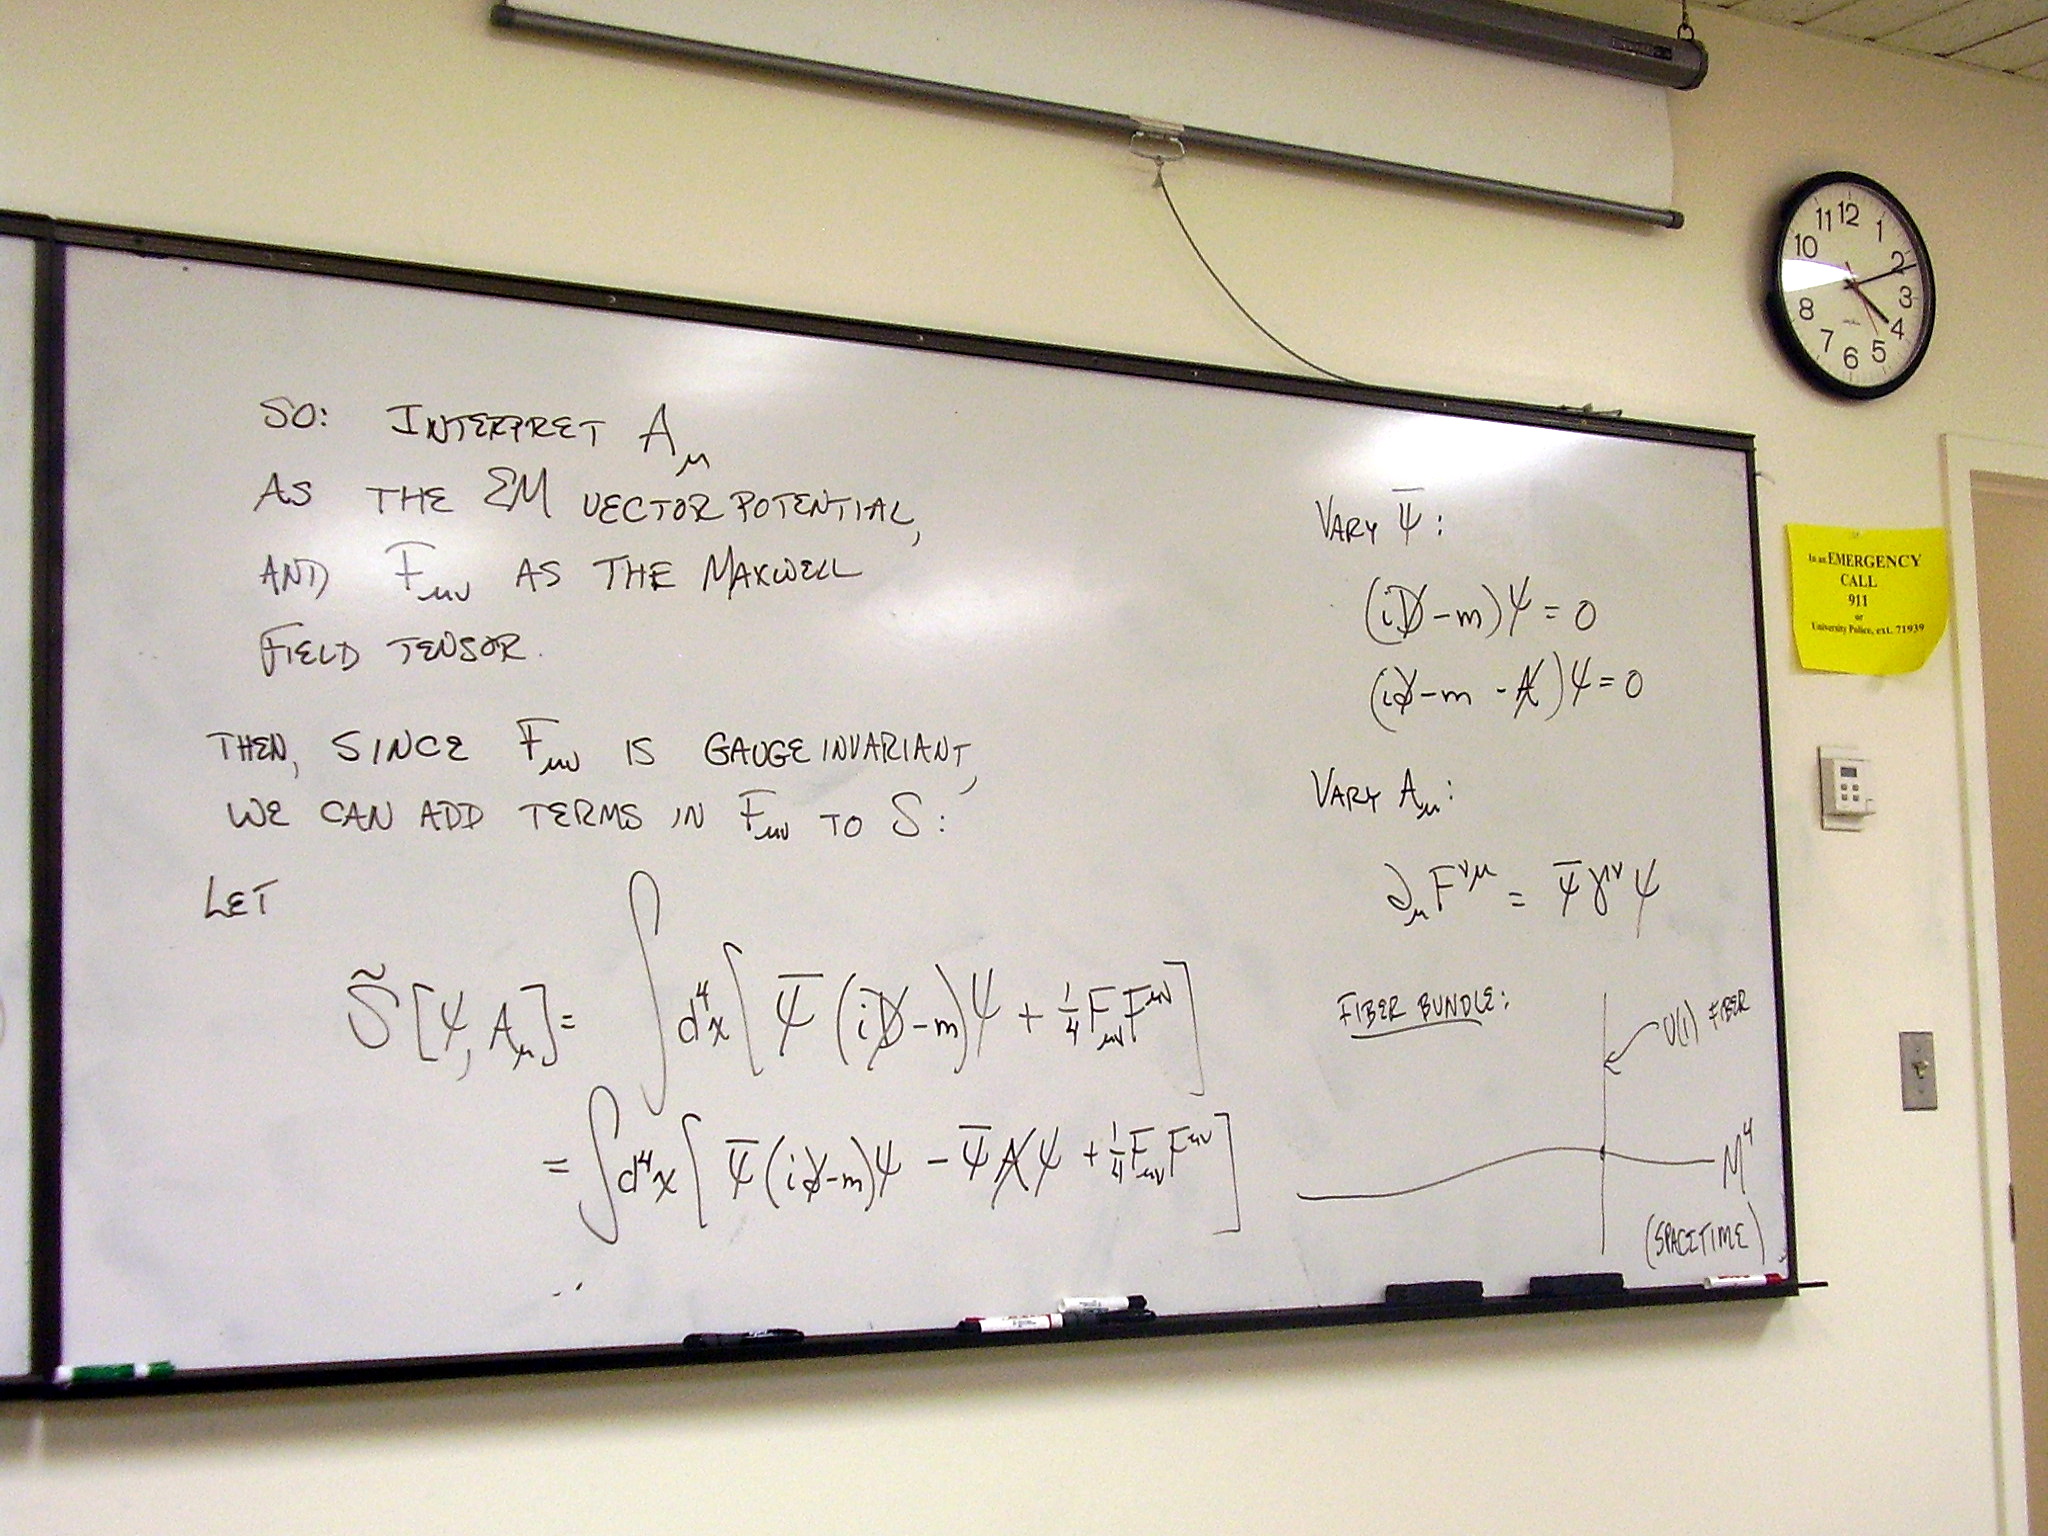 SO: INTERPRET A_μ
AS THE EM VECTOR POTENTIAL,
AND F_μν AS THE MAXWELL
FIELD TENSOR.
THEN, SINCE F_μν IS GAUGE INVARIANT,
WE CAN ADD TERMS IN F_μν TO S:
LET
S̃[ψ, A_μ] = ∫d⁴x[ψ̄(iD̸-m)ψ + ¼F_μνF^μν]
= ∫d⁴x[ψ̄(i∂̸-m)ψ - ψ̄A̸ψ + ¼F_μνF^μν]
VARY ψ̄:
(iD̸-m)ψ = 0
(i∂̸-m-A̸)ψ = 0
VARY A_μ:
∂_μF^νμ = ψ̄γ^νψ
FIBER BUNDLE:
U(1) FIBER
M⁴
(SPACETIME)
11 12 1
10 2
3
8 4
7 6 5
In an EMERGENCY
CALL
911
or
University Police, ext. 71939